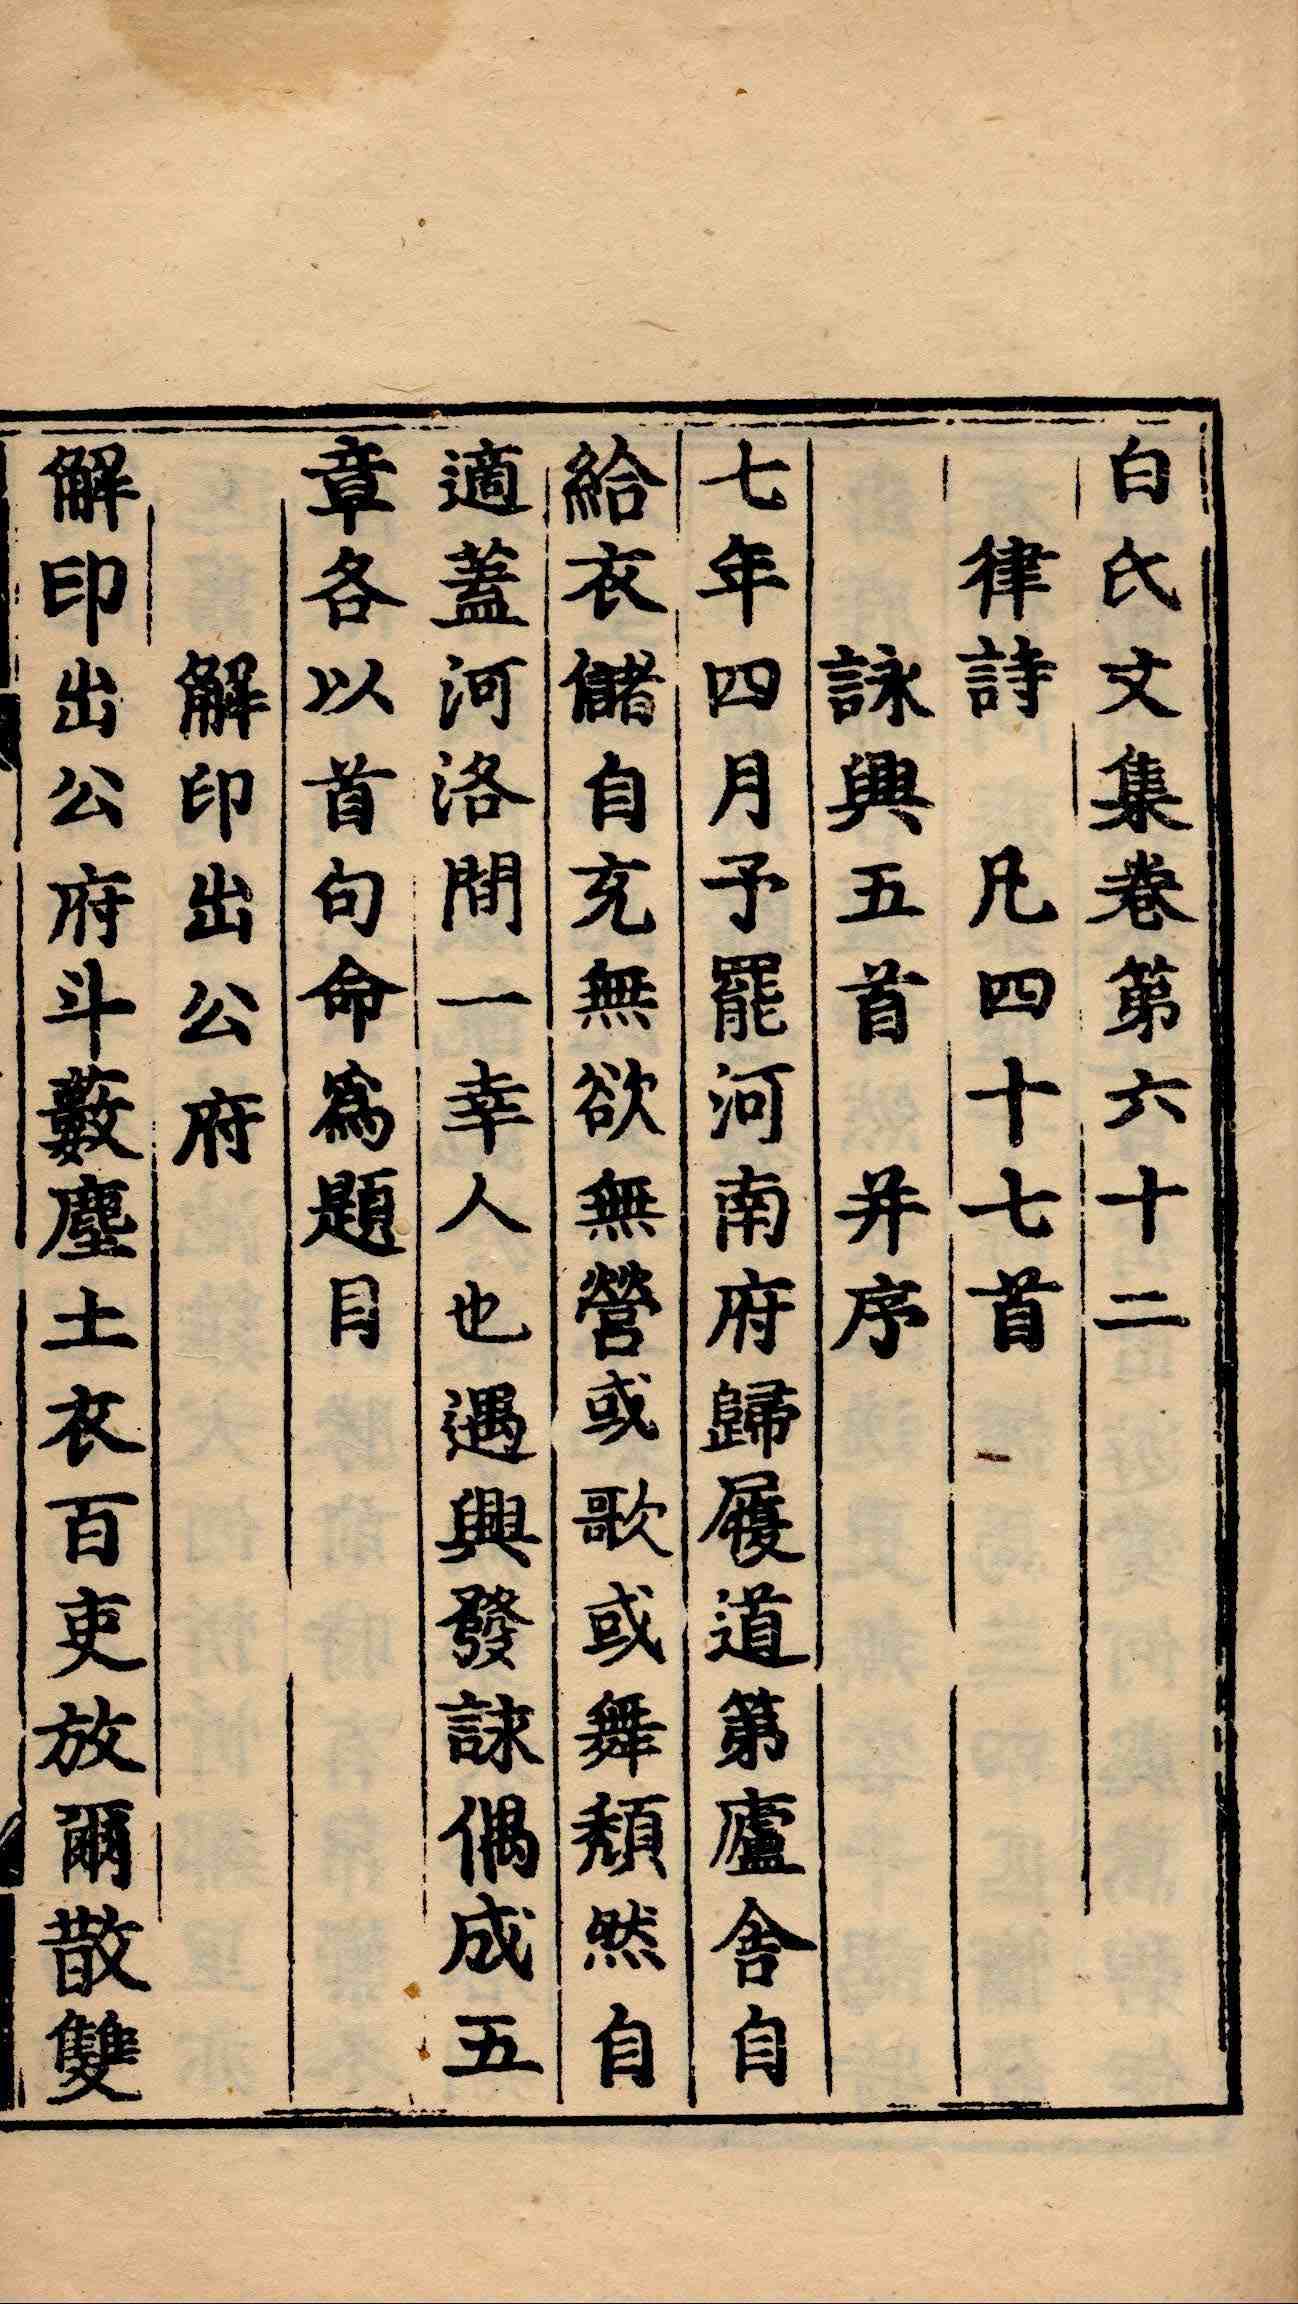 白氏文集卷第六十二
律詩　凡四十七首
詠興五首　并序
七年四月予罷河南府歸履道第廬舍自
給衣儲自充無欲無營或歌或舞頽然自
適蓋河洛間一幸人也遇興發詠偶成五
章各以首句命爲題目
解印出公府
解印出公府斗藪塵土衣百吏放爾散雙